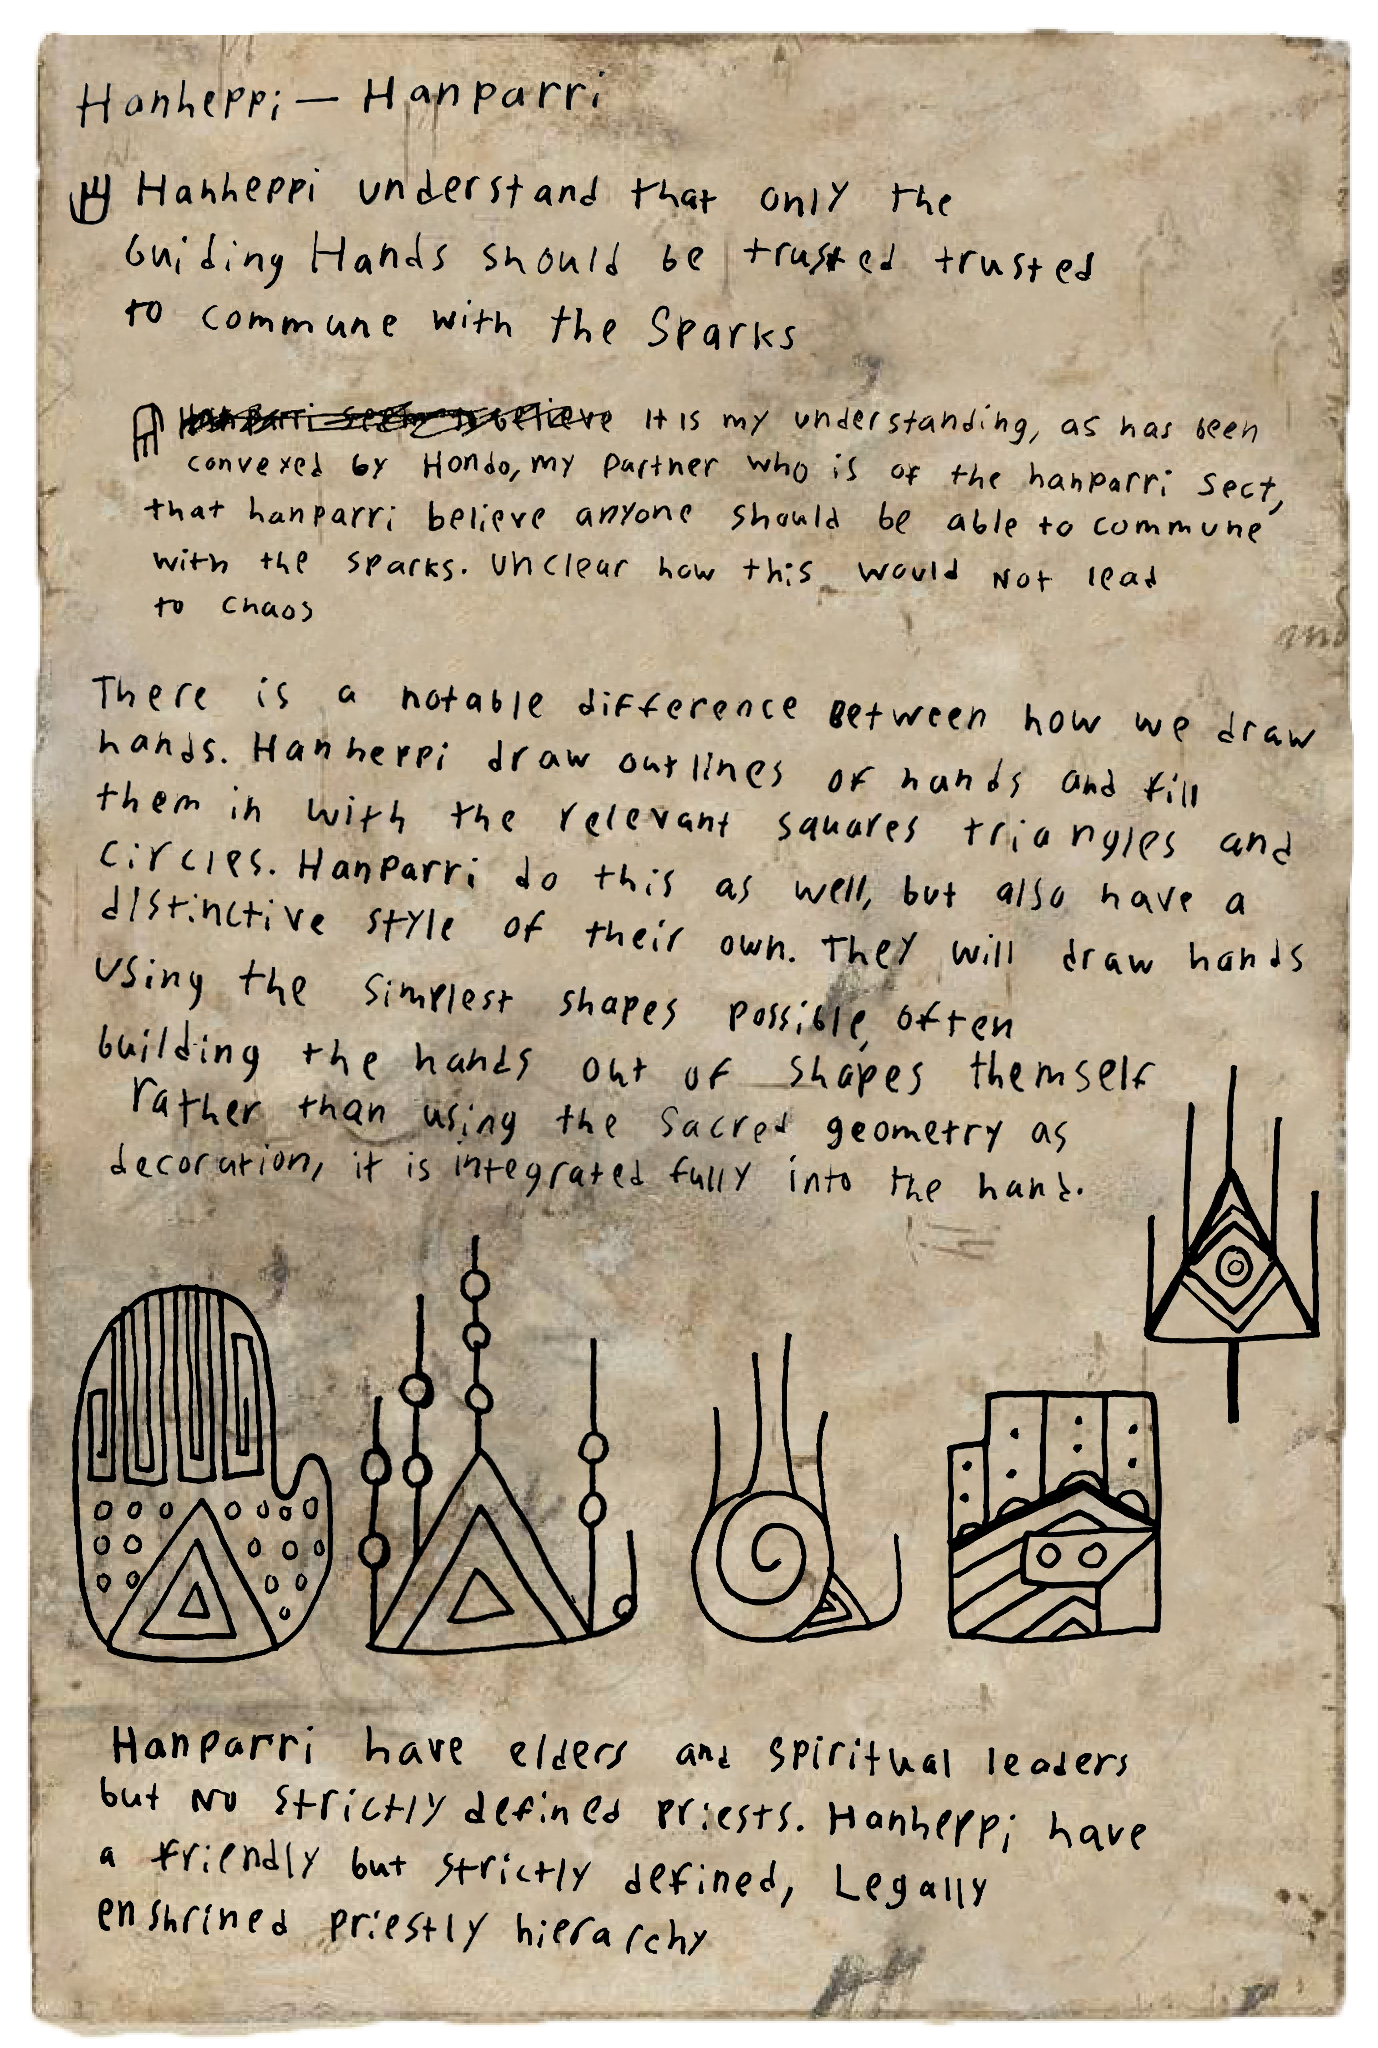 Hanheppi — Hanparri
Hanheppi understand that only the
Guiding Hands should be trusted trusted
to commune with the Sparks
Hanparri seem to believe It is my understanding, as has been
convexed by Hondo, my partner who is of the hanparri sect,
that hanparri believe anyone should be able to commune
with the sparks. Unclear how this would not lead
to chaos
There is a notable difference between how we draw
hands. Hanheppi draw outlines of hands and fill
them in with the relevant squares triangles and
circles. Hanparri do this as well, but also have a
distinctive style of their own. They will draw hands
using the simplest shapes possible, often
building the hands out of shapes themself
rather than using the sacred geometry as
decoration, it is integrated fully into the hand.
Hanparri have elders and spiritual leaders
but no strictly defined priests. Hanheppi have
a friendly but strictly defined, Legally
enshrined priestly hierarchy